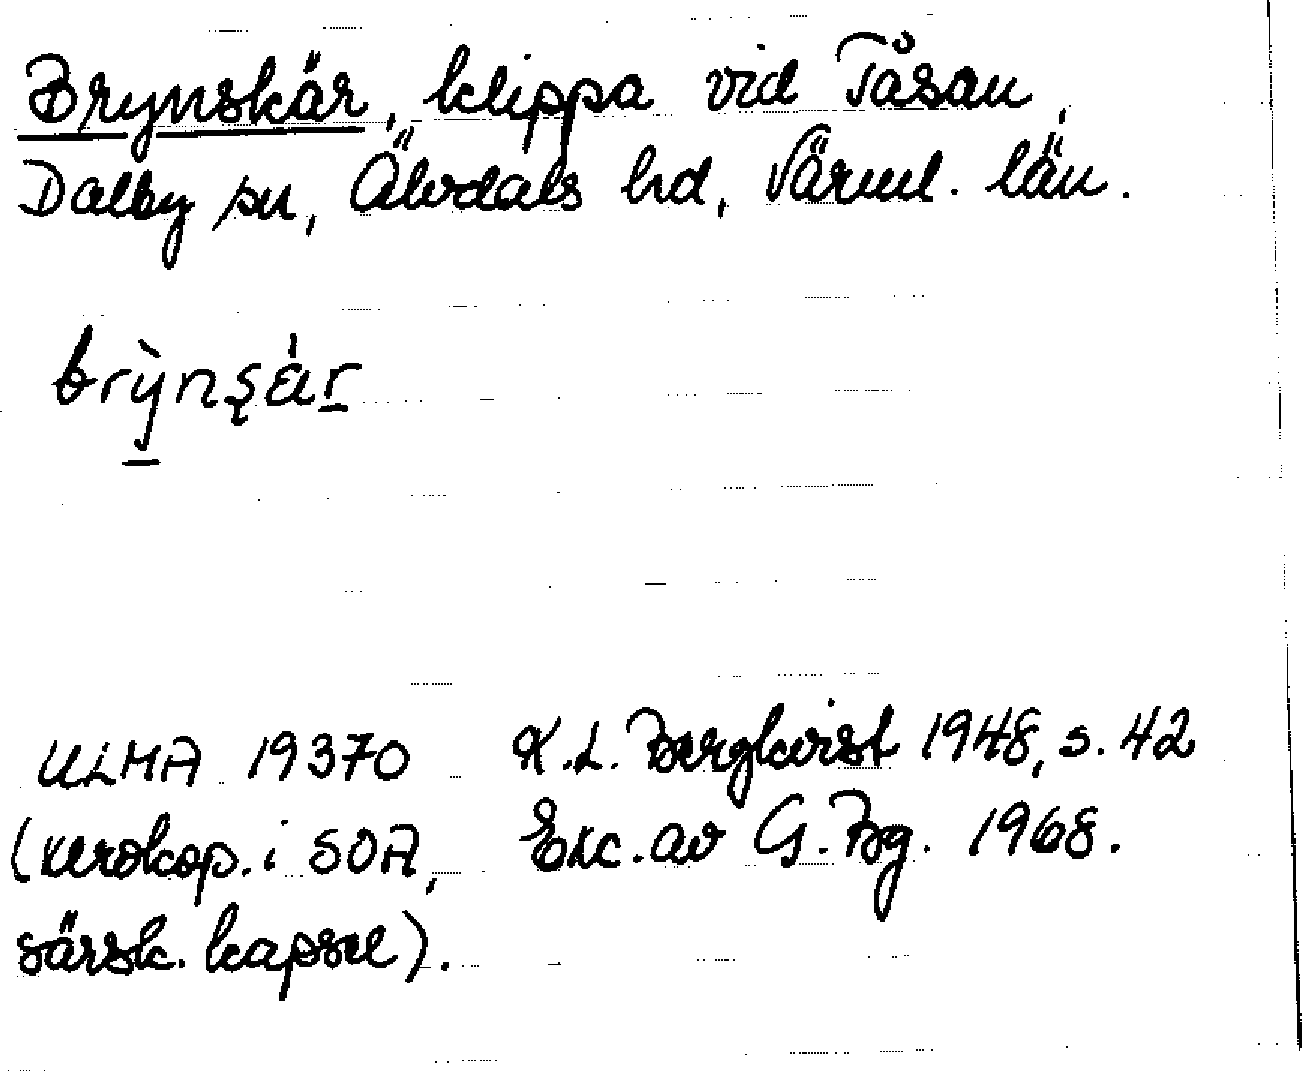 Brynskär, klippa vid Tåsan,
Dalby sn, Älvdals hd, Värml. län.
brỳnşär
ULMA 19370 K.L. Bergkvist 1948, s. 42
(xerokop. i SOA, Exc. av G. Bg. 1968.
särsk. kapsel).